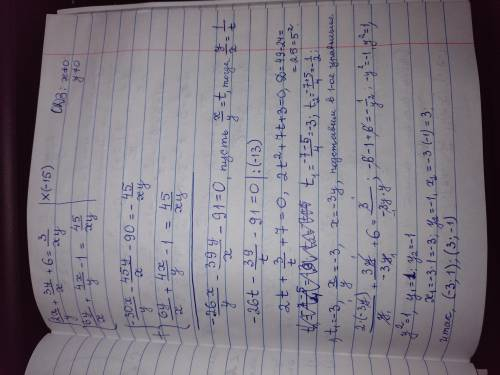 ОДЗ: x≠0
y≠0
{ 2x/y + 3y/x + 6 = 3/xy | ×(-15)
6y/x + 4x/y - 1 = 45/xy
{ -30x/y - 45y/x - 90 = -45/xy
+ 6y/x + 4x/y - 1 = 45/xy
-26x/y - 39y/x - 91 = 0, пусть x/y = t, тогда y/x = 1/t
-26t - 39/t - 91 = 0 | :(-13)
2t + 3/t + 7 = 0, 2t² + 7t + 3 = 0, D = 49 - 24 =
= 25 = 5²
t₁ = (-7-5)/4 = -3; t₂ = (-7+5)/4 = -1/2;
1) t₁ = -3, x/y = -3, x = -3y, подставим в 1-ое уравнение.
2·(-3y)/y + 3y/-3y + 6 = 3/-3y·y; -6 - 1 + 6 = -1/y²; -y² = -1, y² = 1,
y² = 1, y₁ = 1; y₂ = -1
x₁ = -3·1 = -3; y₂ = -1, x₂ = -3·(-1) = 3;
итак, (-3; 1); (3; -1)